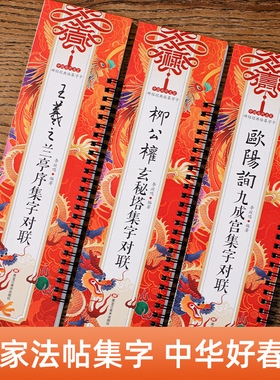 王羲之
兰亭序集字对联
柳公權
玄秘塔集字对联
歐陽詢
九成宫集字对联
家法帖集字 中华好春